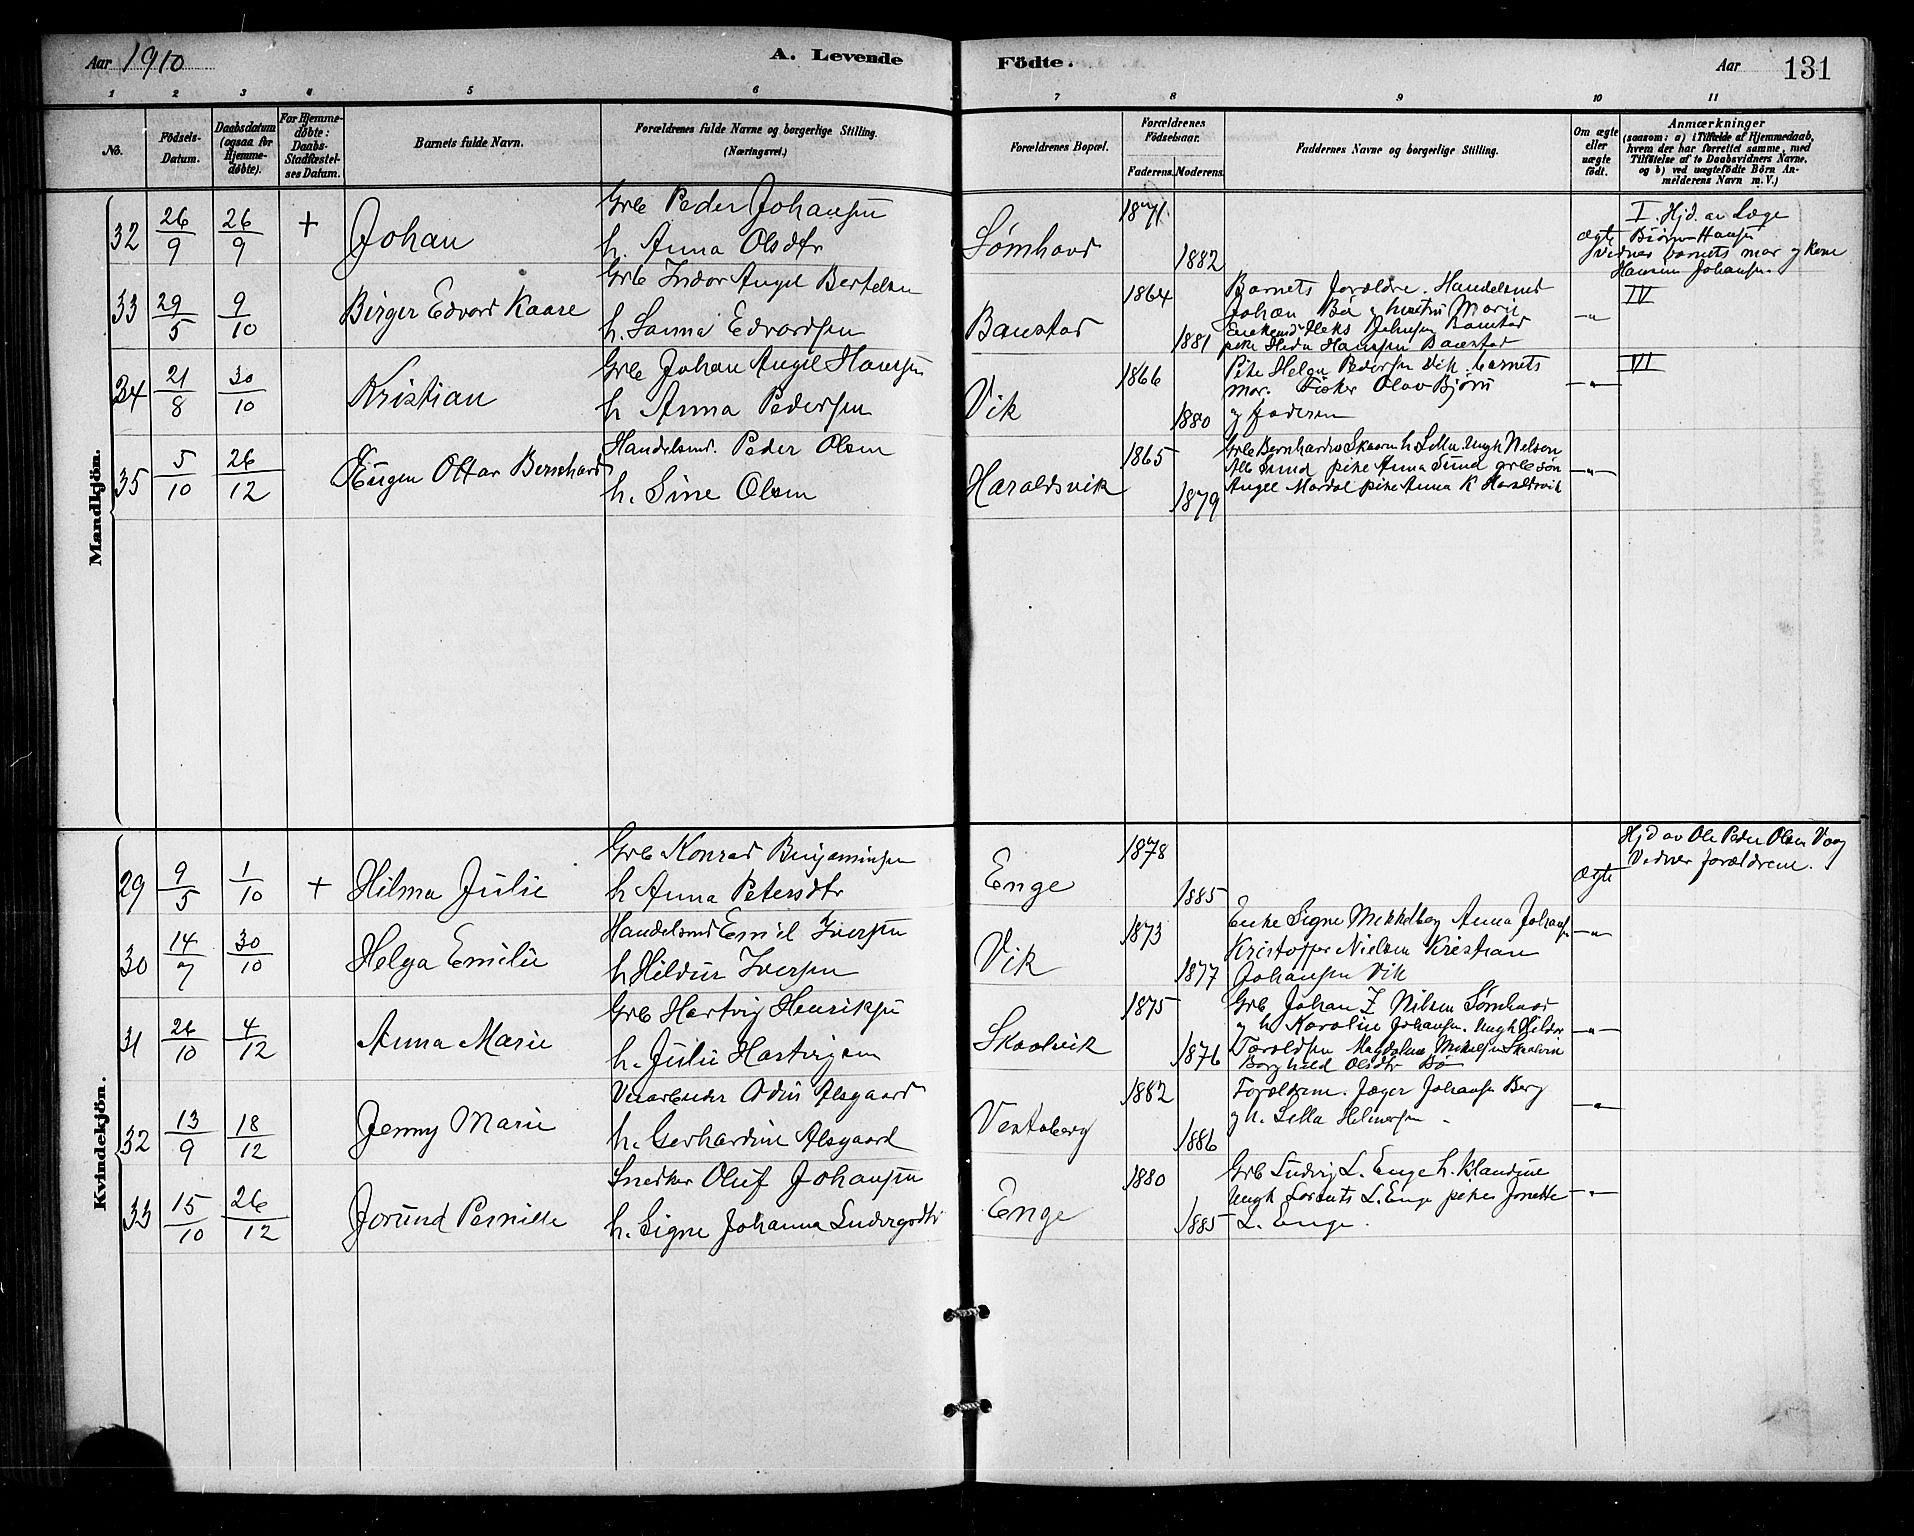 Aar 1910 A. Levende Födte. Aar 131
1 2 3 4 5 6 7 8 9 10 11
No. Födsels-Datum. Daabsdatum (ogsaa for Hjemme-døbte). For Hjemme-døbte: Daabs-Stadfæstel-ses Datum. Barnets fulde Navn. Forældrenes fulde Navne og borgerlige Stilling. (Næringsvei.) Forældrenes Bopæl. Forældrenes Födselsaar. Faderens. Moderens. Faddernes Navne og borgerlige Stilling. Om ægte eller uægte födt. Anmærkninger (saasom: a) i Tilfælde af Hjemmedaab, hvem der har forrettet samme, med Tilföielse af to Daabsvidners Navne, og b) ved uægtefödte Börn An-melderens Navn m. V.)
Mandkjön.
32 26/9 26/9 + Johan
Grb Peder Johansen
h. Anna Olsdtr
Sømhovd 1871 1882 ægte
I. Hjd. av Læge
Bjørn Hansen
Vidner barnets mor og Kone
Hansen Johansen
33 29/5 9/10 Birger Edvard Kaare
Grb Indor Angel Bertelsen
h. Sanna Edvardsen
Baustad 1864 1881
Barnets Forældre. Handelsmd
Johan Bø og hustru Marie
Enkemd Aleks Johnsen Baustad
pike Heda Hanssen Baustad
-"- IV
34 21/8 30/10 Kristian
Grb Johan Angel Hanssen
h Anna Pedersen
Vik 1866 1880
Pike Helga Pedersen Vik. barnets
mor. Fisker Olav Bjørn
og faderen
-"- VI
35 5/10 26/12 Eugen Ottar Bernhard
Handelsmd. Peder Olsen
h. Sine Olsen
Haraldsvik 1865 1879
Grb Bernhardus Skaarn h Silla Ungk Nilsen
Alb Sund pike Anna Sund grb søn
Angel Mardal pike Anna K Haraldsvik
-"-
Kvindekjön.
29 9/5 1/10 + Hilma Julie
Grb Konrad Benjaminsen
h Anna Petersdtr
Enge 1878 1885 Ægte
Hjd av Ole Peder Olsen Vaag
Vidner forældrene.
30 14/7 30/10 Helga Emilie
Handelsmd Emil Iversen
h Hildur Iversen
Vik 1873 1877
Enke Signe Mikkelborg Anna Johansen
Kristoffer Nielsen Kristian
Johansen Vik
-"-
31 26/10 4/12 Anna Marie
Grb Hartvig Henriksen
h. Julie Hartvigsen
Skaalvik 1875 1876
Grb Johan Z Nilsen Sømhovd
og h Karoline Johansen. Ungk Hilder
Taraldsen Magdalena Mikelsen Skaalvik
Borghild Olsdtr Bø
-"-
32 13/9 18/12 Jenny Marie
Veiarbeider Odin Alsgaard
h. Gerhardine Alsgaard
Vestaberg 1882 1886
Forældrene. Jæger Johansen Berg
og h. Silla Helmersen.
-"-
33 15/10 26/12 Jorund Pernille
Snedker Oluf Johansen
h. Signe Johanna Ludvigsdtr
Enge 1880 1885
Grb Ludvig L. Enge h. Klaudine
Ungk Lorents L. Enge pike Jonette
L. Enge.
-"-